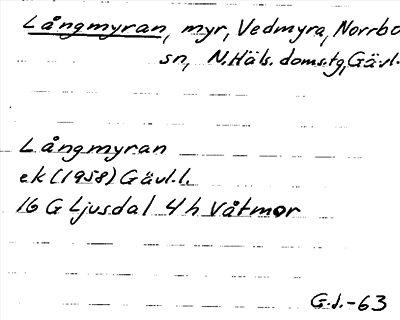 Långmyran, myr, Vedmyra, Norrbo
sn, N.Häls. doms.tg, Gävl.
Långmyran
ek (1958) Gävl.l.
16 G Ljusdal 4 h Våtmor
G.J.-63